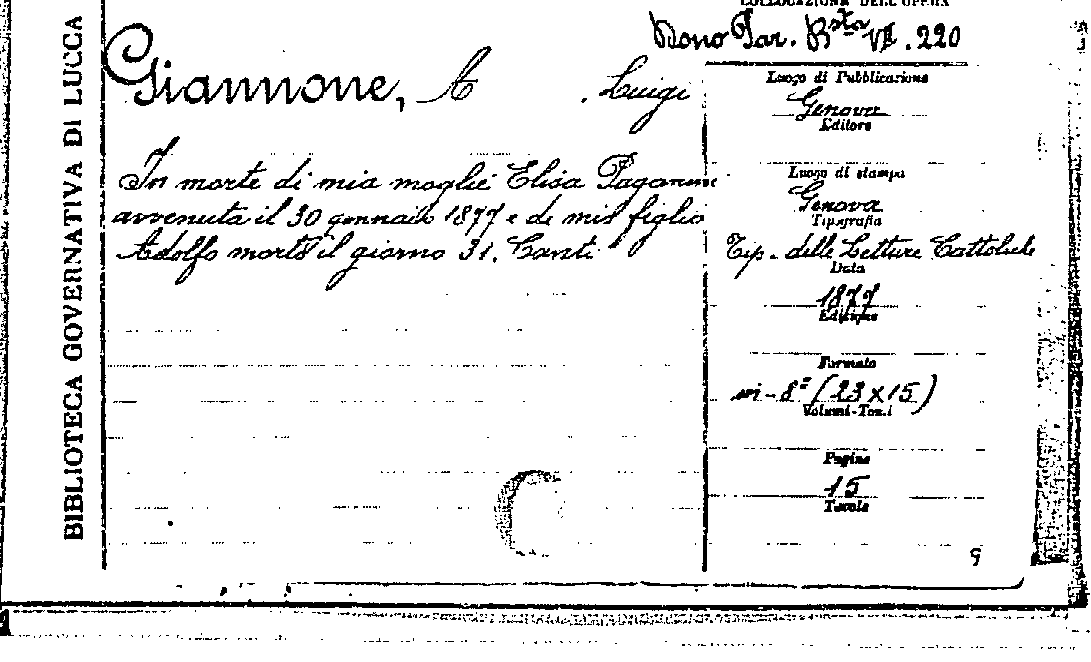 BIBLIOTECA GOVERNATIVA DI LUCCA
COLLOCAZIONE DELL'OPERA
Dono Par. Bsta VII. 220
Giannone, Luigi
In morte di mia moglie Elisa Paganini
avvenuta il 30 gennaio 1877 e di mio figlio
Adolfo morto il giorno 31. Canti
Luogo di Pubblicazione
Genova
Editore
Luogo di stampa
Genova
Tipografia
Tip. delle Letture Cattoliche
Data
1877
Edizione
Formato
in-8° (23x15)
Volumi-Tomi
Pagine
15
Tavole
9